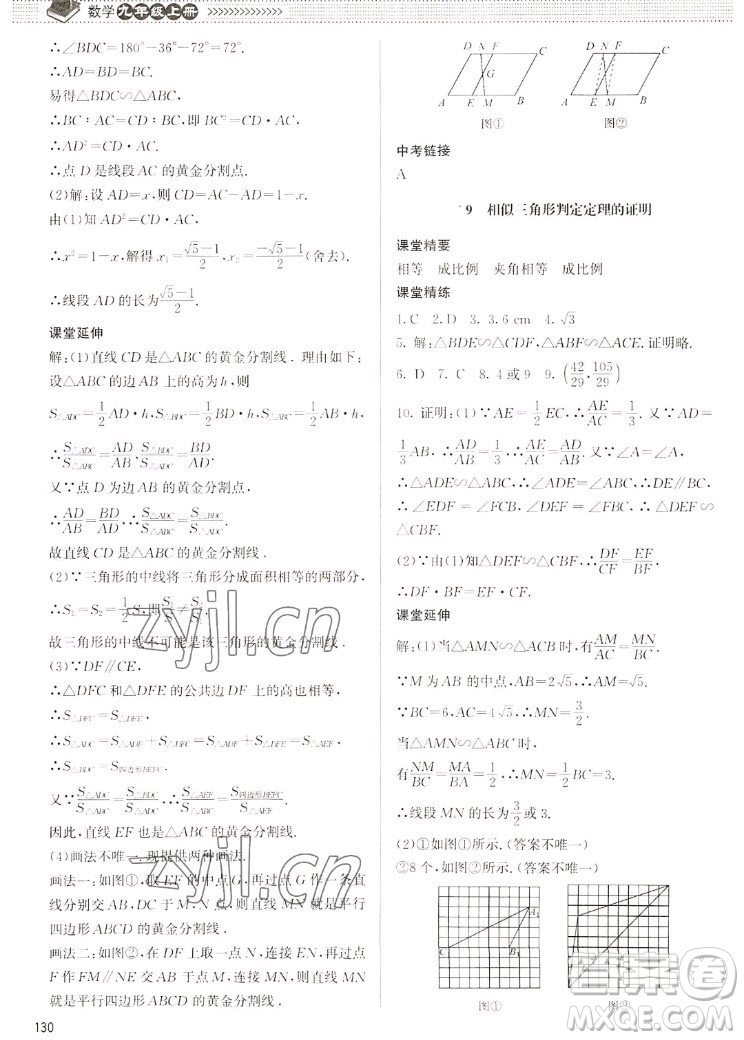 数学九年级上册
∴∠BDC=180°-36°-72°=72°.
∴AD=BD=BC.
易得△BDC∽△ABC,
∴BC：AC=CD：BC,即BC²=CD·AC,
∴AD²=CD·AC.
∴点D是线段AC的黄金分割点.
(2)解:设AD=x,则CD=AC-AD=1-x.
由(1)知AD²=CD·AC,
∴x²=1-x,解得x₁=(√5-1)/2,x₂=(-√5-1)/2(舍去).
∴线段AD的长为(√5-1)/2.
课堂延伸
解:(1)直线CD是△ABC的黄金分割线．理由如下:
设△ABC的边AB上的高为h,则
S△ADC=1/2 AD·h,S△BDC=1/2 BD·h,S△ABC=1/2 AB·h,
∴S△ADC/S△ABC=AD/AB,S△BDC/S△ADC=BD/AD.
又∵点D为边AB的黄金分割点,
∴AD/AB=BD/AD,∴S△ADC/S△ABC=S△BDC/S△ADC.
故直线CD是△ABC的黄金分割线.
(2)∵三角形的中线将三角形分成面积相等的两部分,
∴S₁=S₂=1/2 S,即S₁/S≠S₂/S₁.
故三角形的中线不可能是该三角形的黄金分割线.
(3)∵DF∥CE,
∴△DFC和△DFE的公共边DF上的高也相等,
∴S△DFC=S△DFE,
∴S△ADC=S△ADF+S△DFC=S△ADF+S△DFE=S△AEF,
∴S△BDC=S四边形BEFC.
又∵S△ADC/S△ABC=S△BDC/S△ADC,∴S△AEF/S△ABC=S四边形BEFC/S△AEF.
因此,直线EF也是△ABC的黄金分割线.
(4)画法不唯一,现提供两种画法.
画法一:如图①,取EF的中点G,再过点G作一条直
线分别交AB,DC于点M,N,则直线MN就是平行
四边形ABCD的黄金分割线.
画法二:如图②,在DF上取一点N,连接EN,再过点
F作FM∥NE交AB于点M,连接MN,则直线MN
就是平行四边形ABCD的黄金分割线.
130
D N F C
G
A E M B
图①
D N F C
A E M B
图②
中考链接
A
*9 相似三角形判定定理的证明
课堂精要
相等 成比例 夹角相等 成比例
课堂精练
1.C 2.D 3.3.6 cm 4.√3
5.解:△BDE∽△CDF,△ABF∽△ACE.证明略.
6.D 7.C 8.4或9 9.(42/29,105/29)
10.证明:(1)∵AE=1/2 EC,∴AE/AC=1/3.又∵AD=
1/3 AB,∴AD/AB=1/3,∴AE/AC=AD/AB.又∵∠A=∠A,
∴△ADE∽△ABC,∴∠ADE=∠ABC,∴DE∥BC,
∴∠EDF=∠FCB,∠DEF=∠FBC,∴△DEF∽
△CBF.
(2)∵由(1)知△DEF∽△CBF,∴DF/CF=EF/BF,
∴DF·BF=EF·CF.
课堂延伸
解:(1)当△AMN∽△ABC时,有AM/AB=MN/BC.
∵M为AB的中点,AB=2√5,∴AM=√5.
∵BC=6,∴MN=3.
当△AMN∽△ACB时,
有NM/BC=MA/BA=1/2,∴MN=3/2.
∴线段MN的长为3/2或3.
(2)①如图①所示.(答案不唯一)
②8个,如图②所示.(答案不唯一)
A₁
C₁
B₁
图①
图②
zyjl.cn
zyjl.cn
答案圈